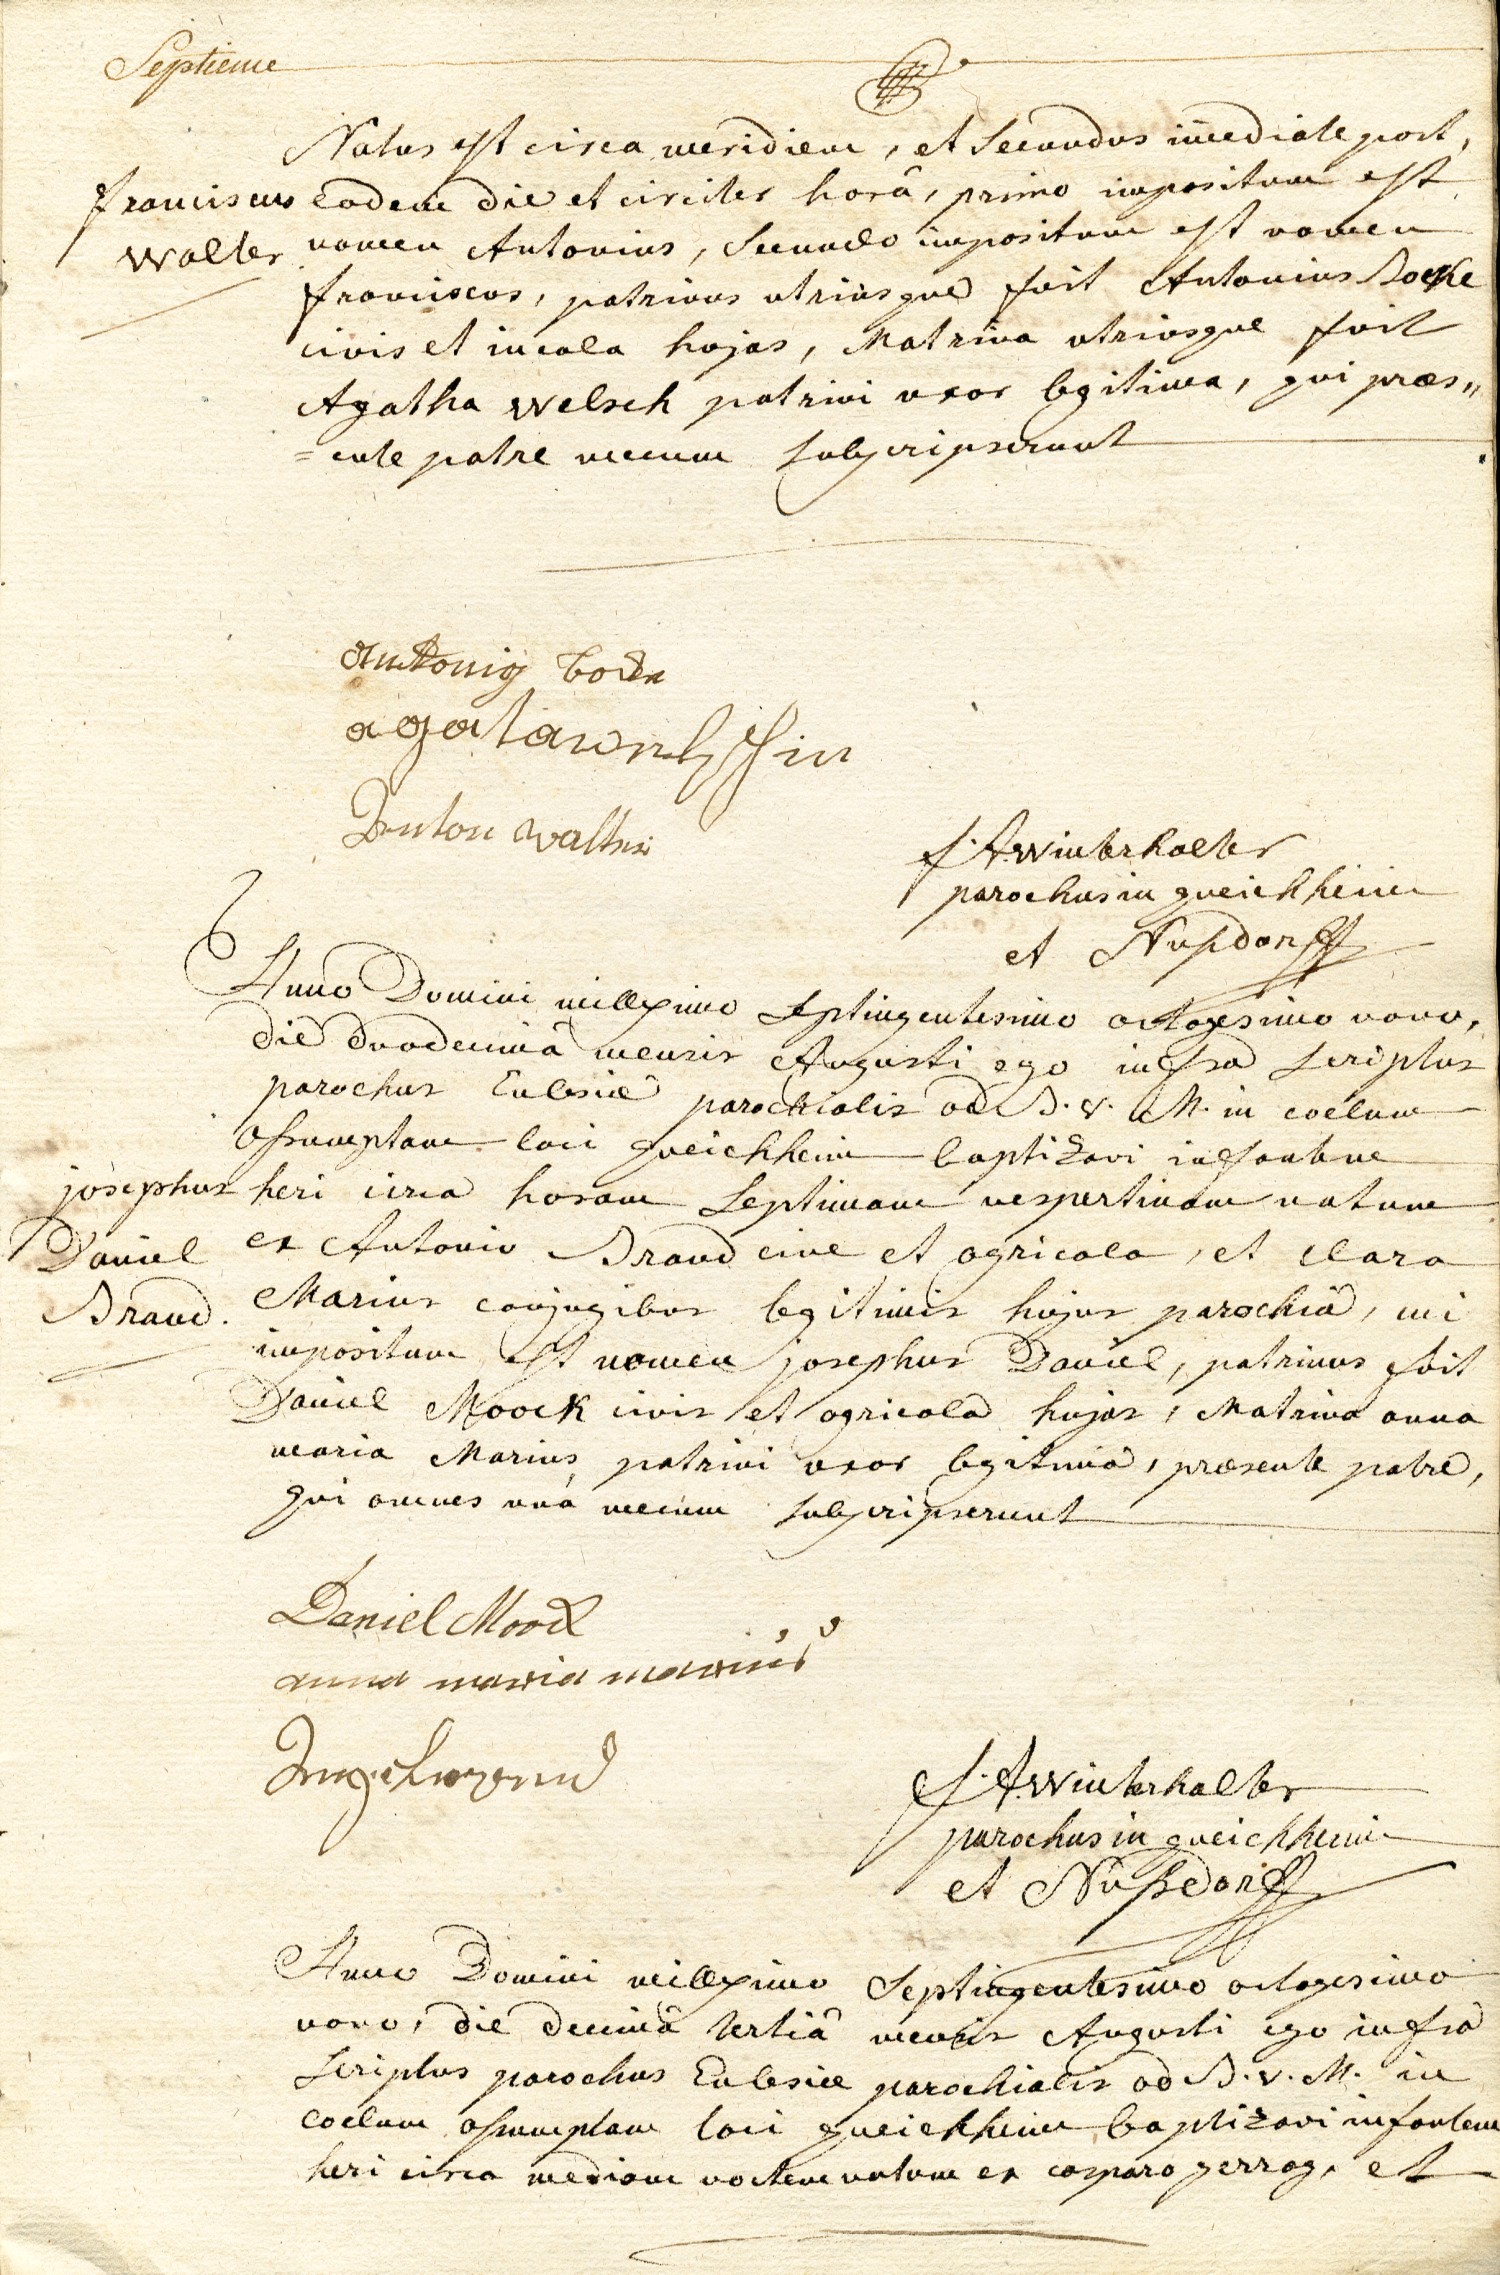 Septieme
Natus est circa meridiem, et Secundus im̄ediate post,
franciscus
Walter
eodem die et circiter horâ, primo impositum est
nomen Antonius, Secundo impositum est nomen
franciscus, patrinus utriusque fuit Antonius Boeke
civis et incola hujas, Matrina utriusque fuit
Agatha Welsch patrini uxor legitima, qui præs„
=ente patre mecum subscripserunt
Antonig
Anton Walter
f. A. Winterhalter
parochus in queichheim
et Nusdorff
Anno Domini millesimo Septingentesimo octogesimo nono,
die duodecimâ mensis Augusti ego infra scriptus
parochus Eclesiæ parochialis ad B. v. M. in coelum
assumptam loci queichheim baptizavi infantem
josephus
Daniel
Braud.
heri circa horam Septimam vespertinam natum
ex Antonio Braud cive et agricola, et clara
Marius conjugibus legitimis hujus parochiæ, cui
impositum est nomen josephus Daniel, patrinus fuit
Daniel Moock civis et agricola hujas, Matrina anna
maria Marius patrini uxor legitima, præsente patre,
qui omnes unà mecum subscripserunt
Daniel Moock
anna maria marius
f. A. Winterhalter
parochus in queichheim
et Nußdorff
Anno Domini millesimo Septingentesimo octogesimo
nono, die decimâ tertiâ mensis Augusti ego infra
scriptus parochus Eclesiæ parochialis ad B. v. M. in
coelum assumptam loci queichheim baptizavi infantem
heri circa mediam noctem natum ex casparo et